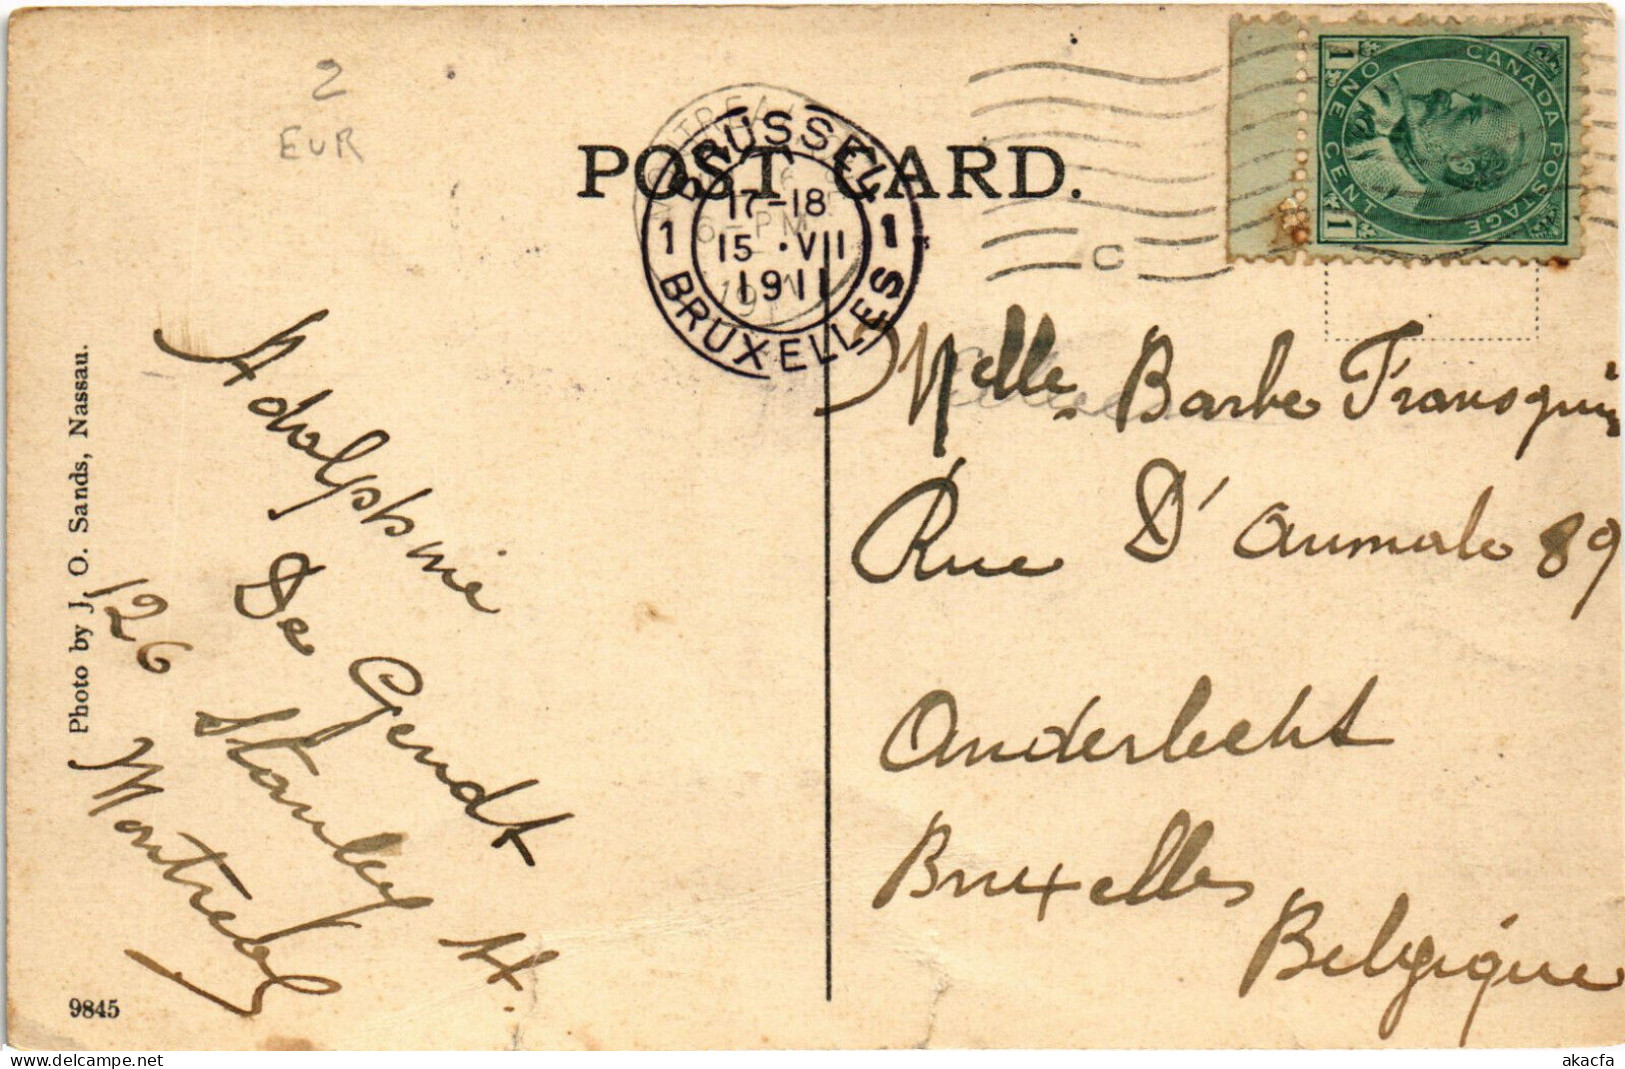 2
EUR
POST CARD.
BRUSSEL
17-18
15 · VII
1911
1 1
BRUXELLES
6-PM
C
CANADA POSTAGE
ONE CENT
1 1
Photo by J. O. Sands, Nassau.
Adolphine
De Gendt
126 Stanley St.
Montreal
Melle Barbe Transquin
Rue D'aumale 89
Anderlecht
Bruxelles
Belgique
9845
akacfa
www.delcampe.net